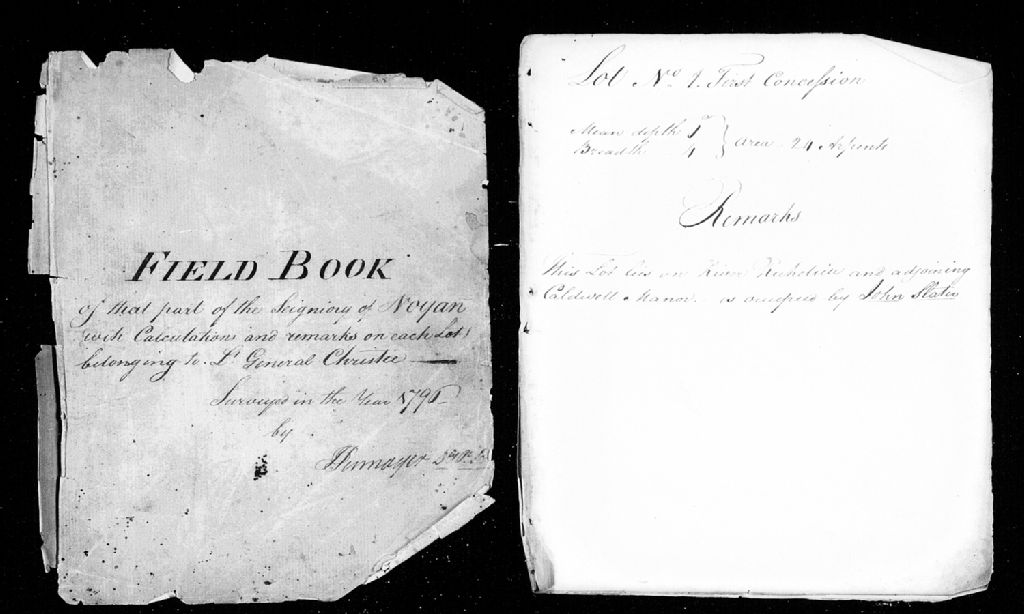 FIELD BOOK
of that part of the Seigniory of Noyan
with Calculations and remarks on each Lot
belonging to Lt General Christie
Surveyed in the Year 1796
by
Lot No 1. First Concession
Mean depth 6
Breadth 4
area 24 Arpents
Remarks
This Lot lies on River Richelieu and adjoining
Caldwell Manor is occupied by John Slater